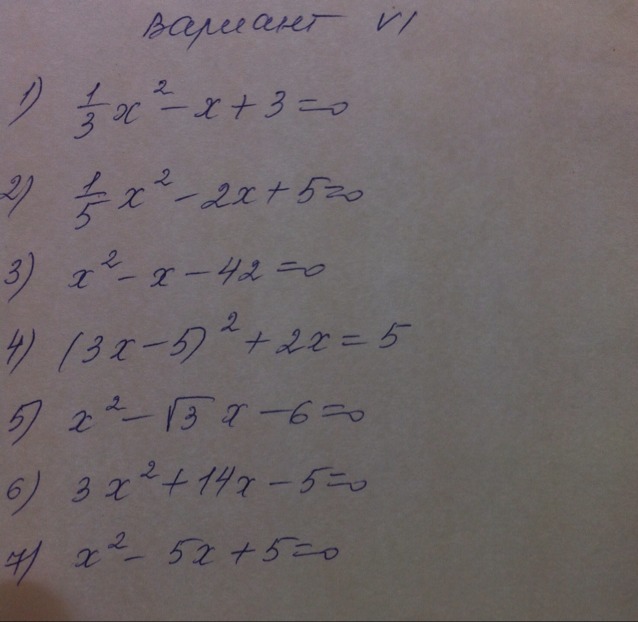 Вариант VI
1) 1/3 x² - x + 3 = 0
2) 1/5 x² - 2x + 5 = 0
3) x² - x - 42 = 0
4) (3x - 5)² + 2x = 5
5) x² - √3 x - 6 = 0
6) 3x² + 14x - 5 = 0
7) x² - 5x + 5 = 0